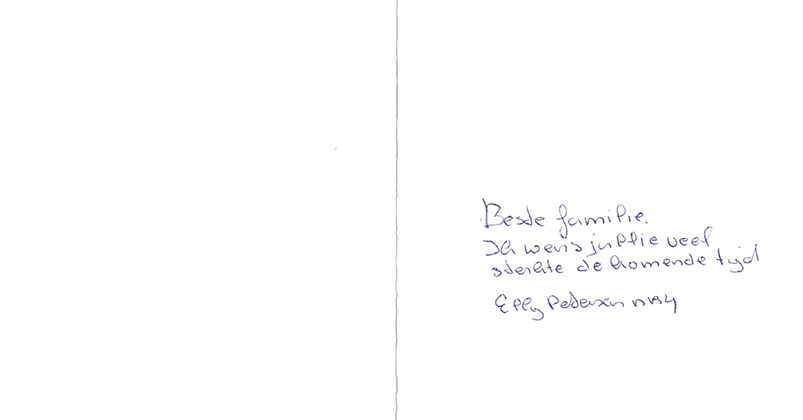 Beste familie.
Ik wens jullie veel
sterkte de komende tijd
Elly Petersen